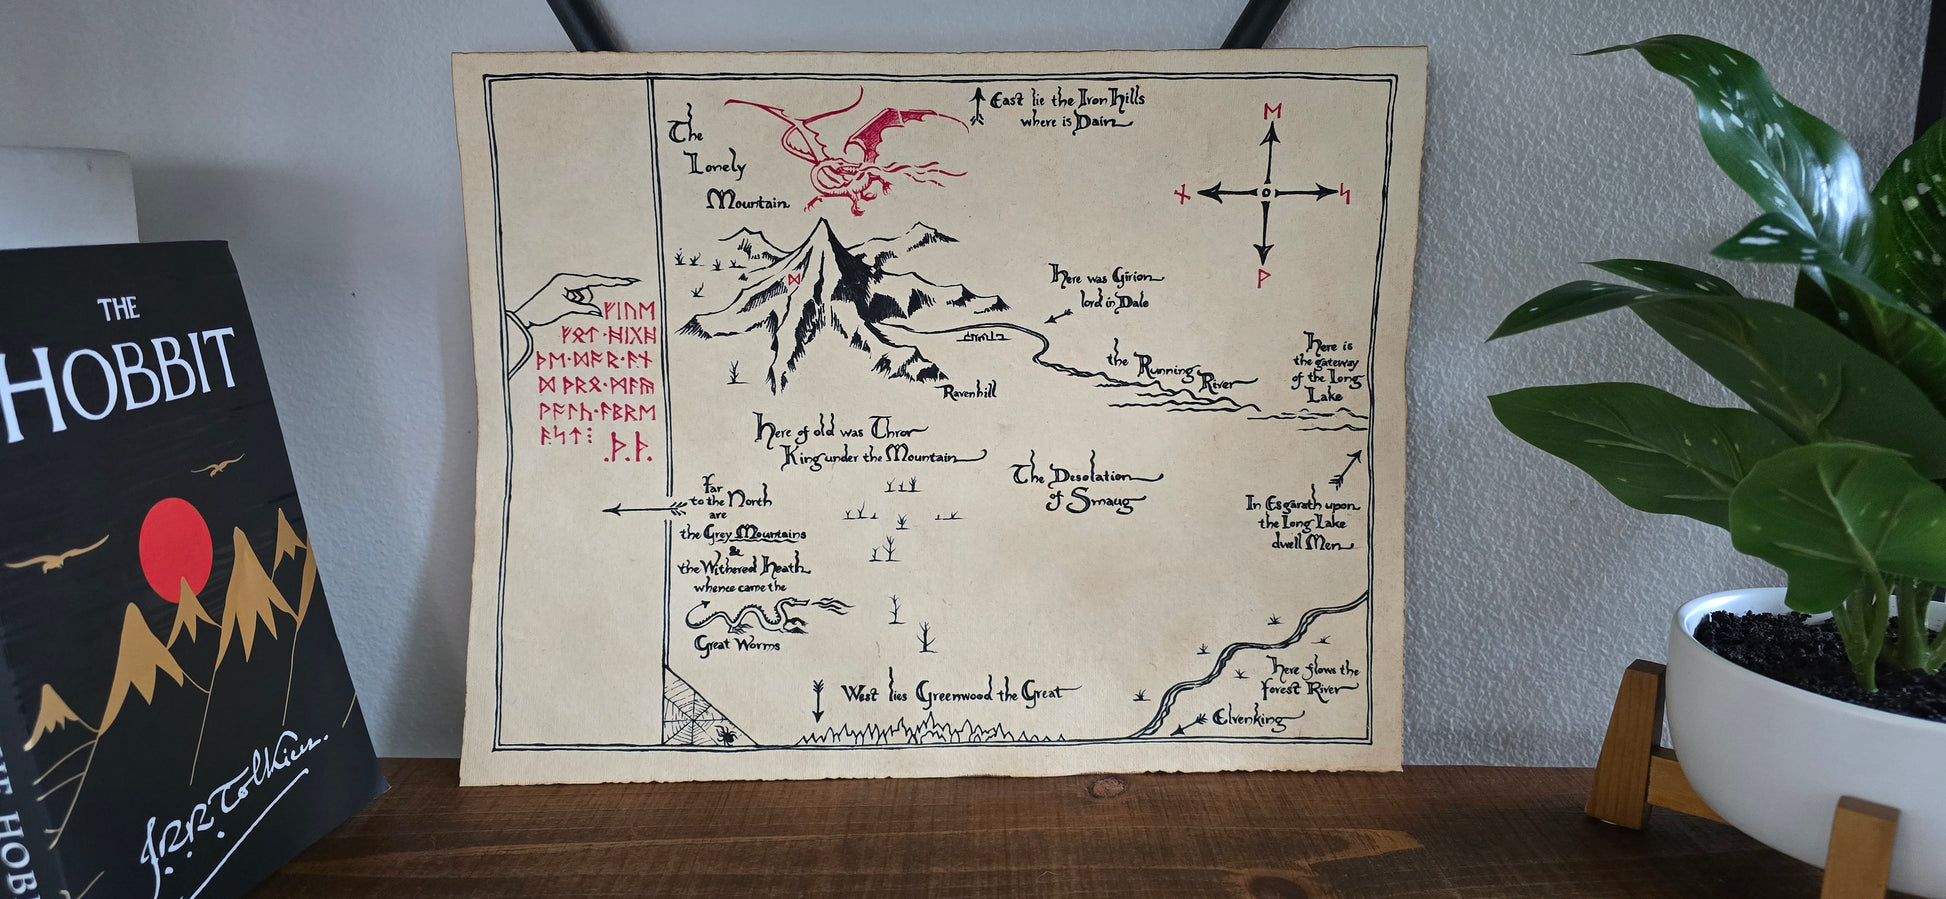 THE
HOBBIT
J.R.R. Tolkien.
THE HOBB
The
Lonely
Mountain
East lie the Iron Hills
where is Dain
ᛖ
ᚾ
ᛋ
ᚹ
ᛞ
ᚠᛁᚢᛖ
ᚠᛟᛏ·ᚻᛁᚷᚻ
ᚦᛖ·ᛞᚩᚱ·ᚪᚾ
ᛞ·ᚦᚱᛟ·ᛗᚪᚣ
ᚹᚪᛚᚳ·ᚪᛒᚱᛖ
ᚪᛋᛏ⁝
.ᚦ.ᚦ.
Here was Girion
lord in Dale
the Running River
Here is
the gateway
of the Long
Lake
Ravenhill
Here of old was Thror
King under the Mountain
The Desolation
of Smaug
Far
to the North
are
the Grey Mountains
&
the Withered Heath
whence came the
Great Worms
In Esgaroth upon
the Long Lake
dwell Men
West lies Greenwood the Great
Here flows the
Forest River
Elvenking